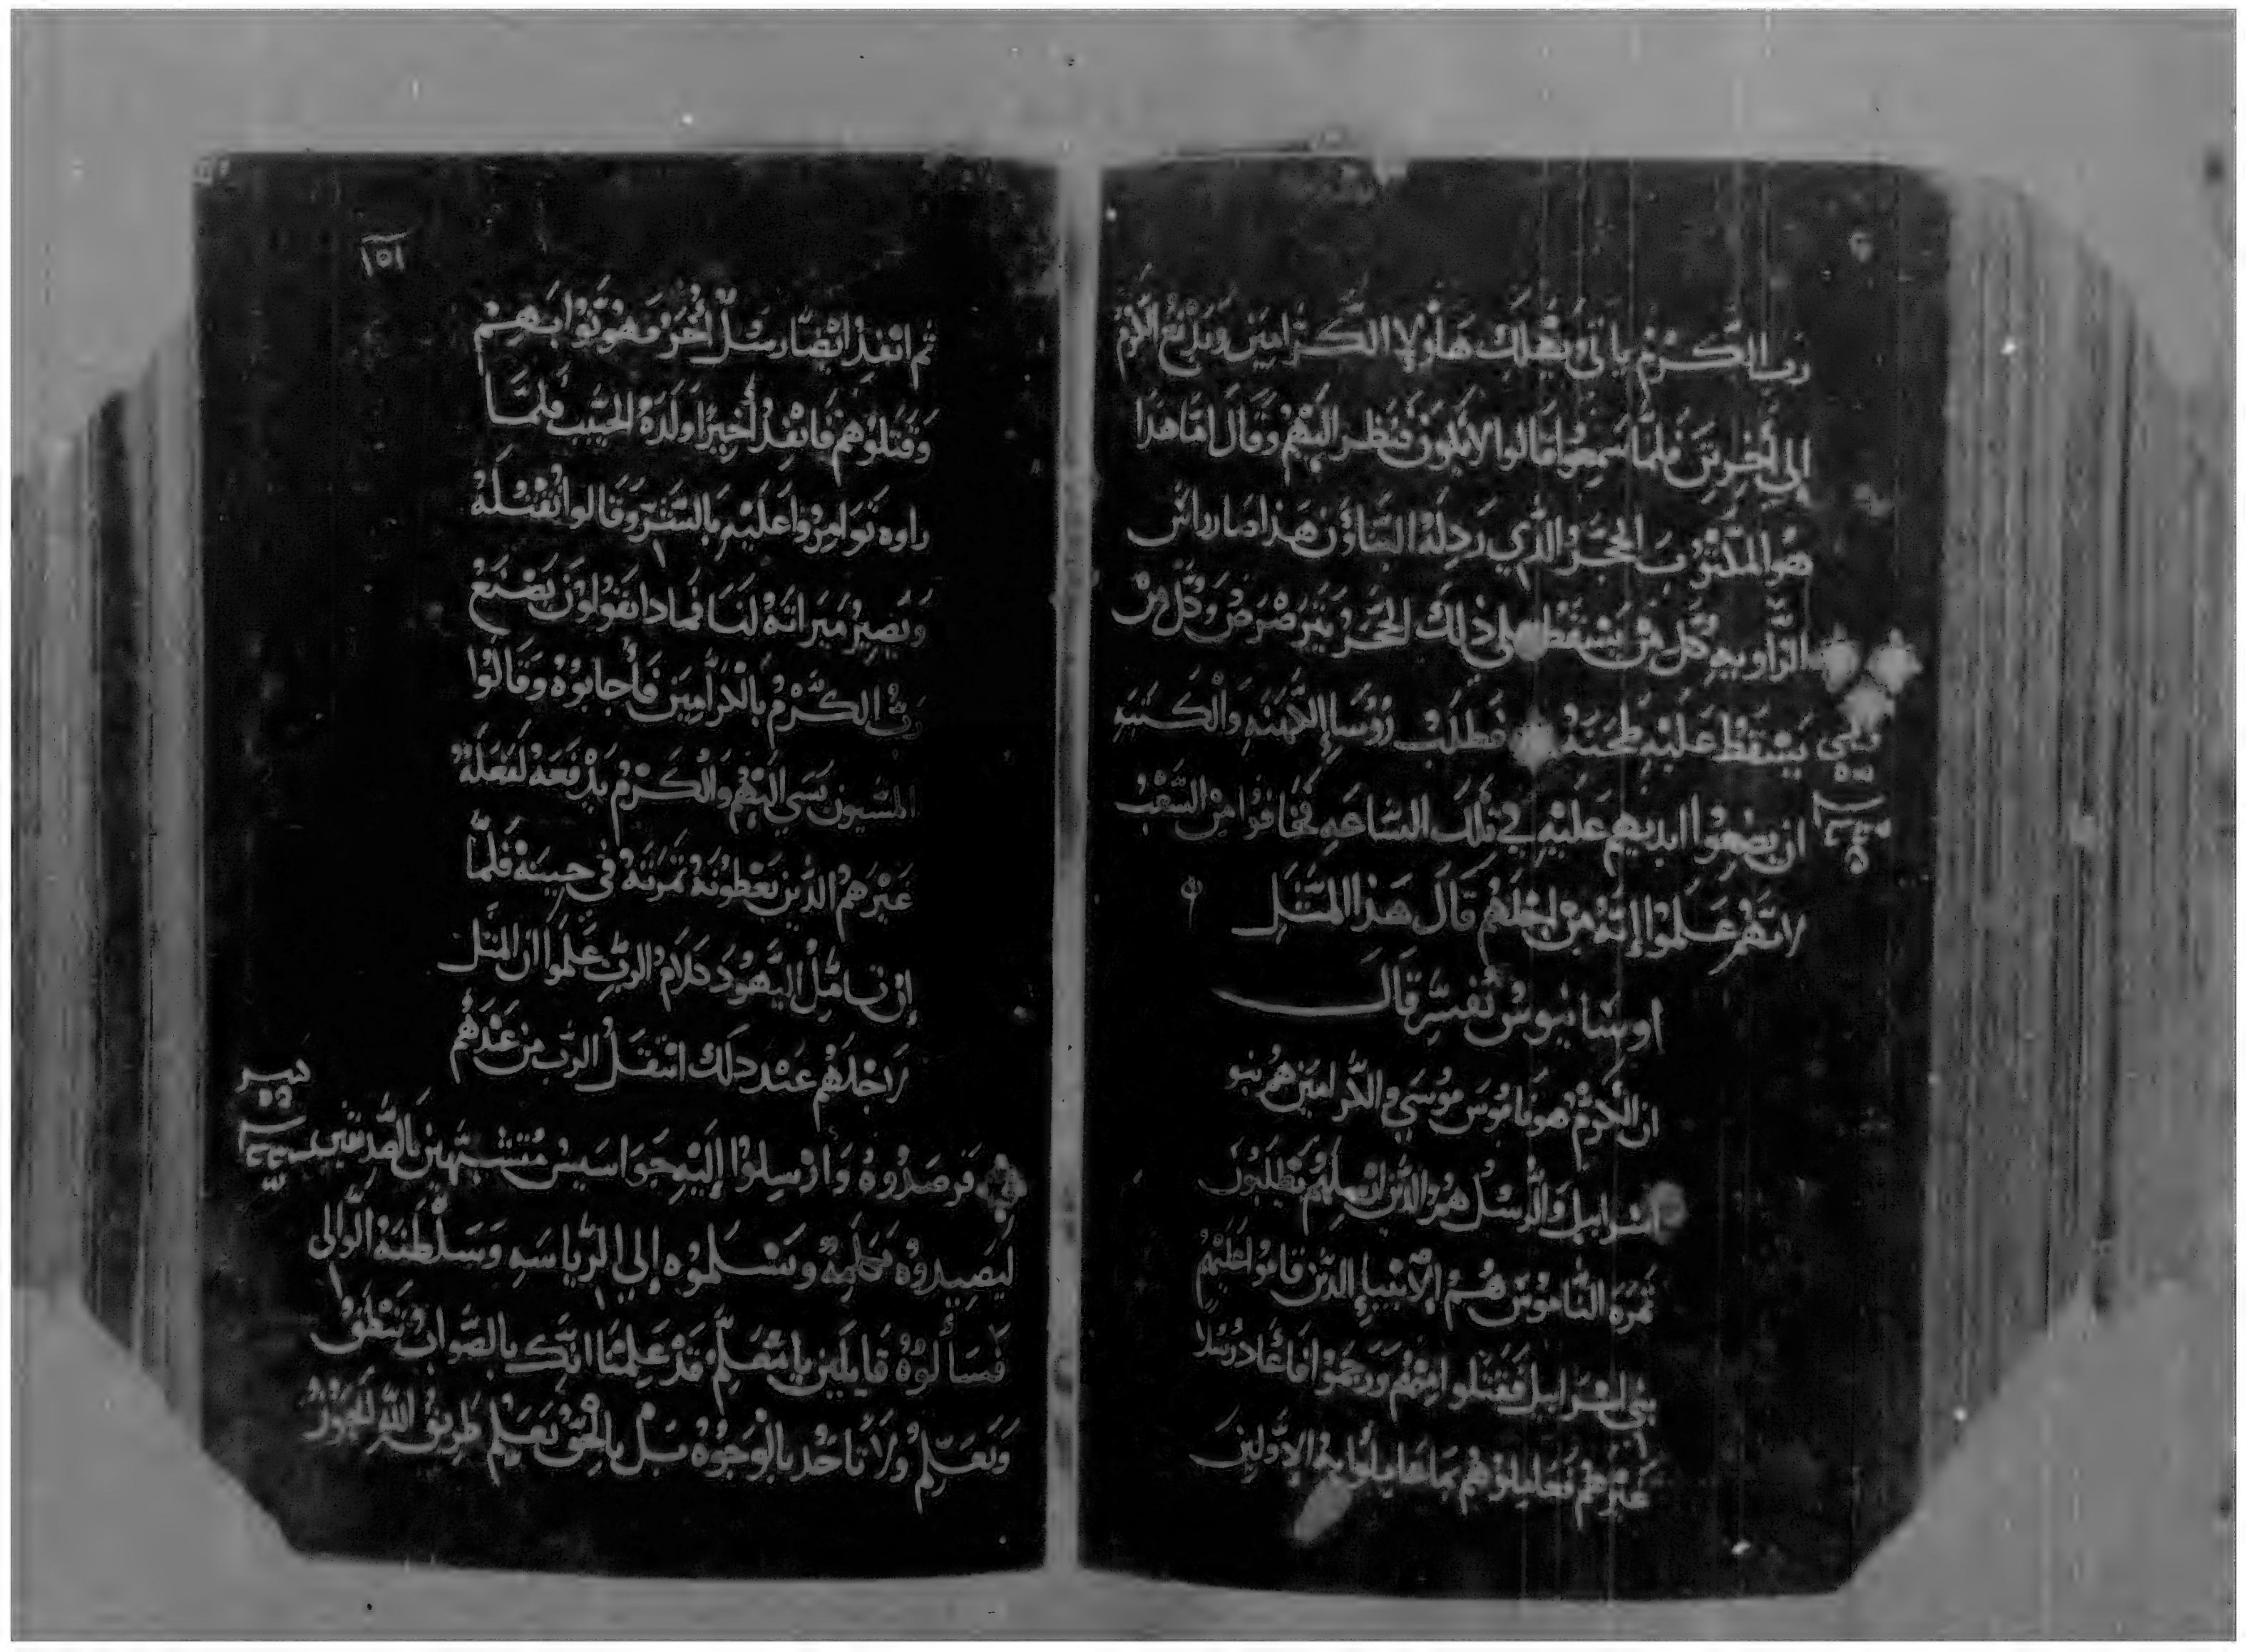 رب الكرم ياتي يهلك هاولا الكرامين ويدفع الكرم
الى اخرين فلما سمعوا قالوا لا يكون فنظر اليهم وقال اما هذا
هو المكتوب الحجر الذي ردله البناوون هذا صار راس
الزاويه كل من يسقط على ذلك الحجر يترضرض وكل من
يسقط عليه يطحنه فطلب روسا الكهنه والكتبه
ان يضعوا ايديهم عليه في تلك الساعه فخافوا من الشعب
لانهم علموا انه من اجلهم قال هذا المثل
اوسابيوس تفسر قال
ان الكرم هو ناموس موسي والكرامين هم بنو
اسراييل والرسل هم الذين ارسلهم يطلبون
ثمره الناموس هم الانبيا الذين قاموا عليهم
بني اسراييل فقتلوا منهم ورجموا فاعاد رسلا
غيرهم فعاملوهم بما عاملوا به الاولين
١٥١
ثم انفذ ايضا رسل اخر فهونوا بهم
وقتلوهم فانفذ اخيرا ولده الحبيب فلما
راوه توامروا عليه بالشر وقالوا نقتله
ويصير ميراته لنا فمادا يقولون يصنع
رب الكرم بالكرامين فاجابوه وقالوا
المسيون يسي اليهم والكرم يدفعه لفعله
غيرهم الذين يعطونه تمرته في حينه فلما
ان تامل اليهود كلام الرب علموا ان المثل
لاجلهم عند دلك انتقل الرب من عندهم
فرصدوه وارسلوا اليه جواسيس متشبهين بالصديقين
ليصيدوه بكلمه ويسلموه الي الرياسه وسلطنه الوالي
فسالوه قايلين يا معلم قد علمنا انك بالصواب تنطق
وتعلم ولا تاخد بالوجوه بل بالحق تعلم طريق الله ايجوز